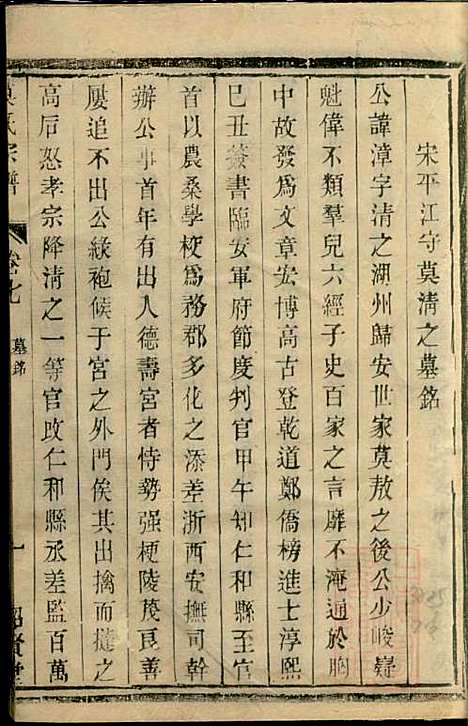 宋平江守莫清之墓銘
公諱漳字清之湖州歸安世家莫敖之後公少峻嶷
魁偉不類羣兒六經子史百家之言靡不淹通於胸
中故發爲文章宏博高古登乾道鄭僑榜進士淳熙
巳丑簽書臨安軍府節度判官甲午知仁和縣至官
首以農桑學校爲務郡多化之添差浙西安撫司幹
辦公事首年有出入德壽宮者恃勢强梗陵茂良善
屢追不出公綠袍候于宮之外門俟其出擒而撻之
高后怒孝宗降清之一等官改仁和縣丞差監百萬
莫氏宗譜
卷七
墓銘
一